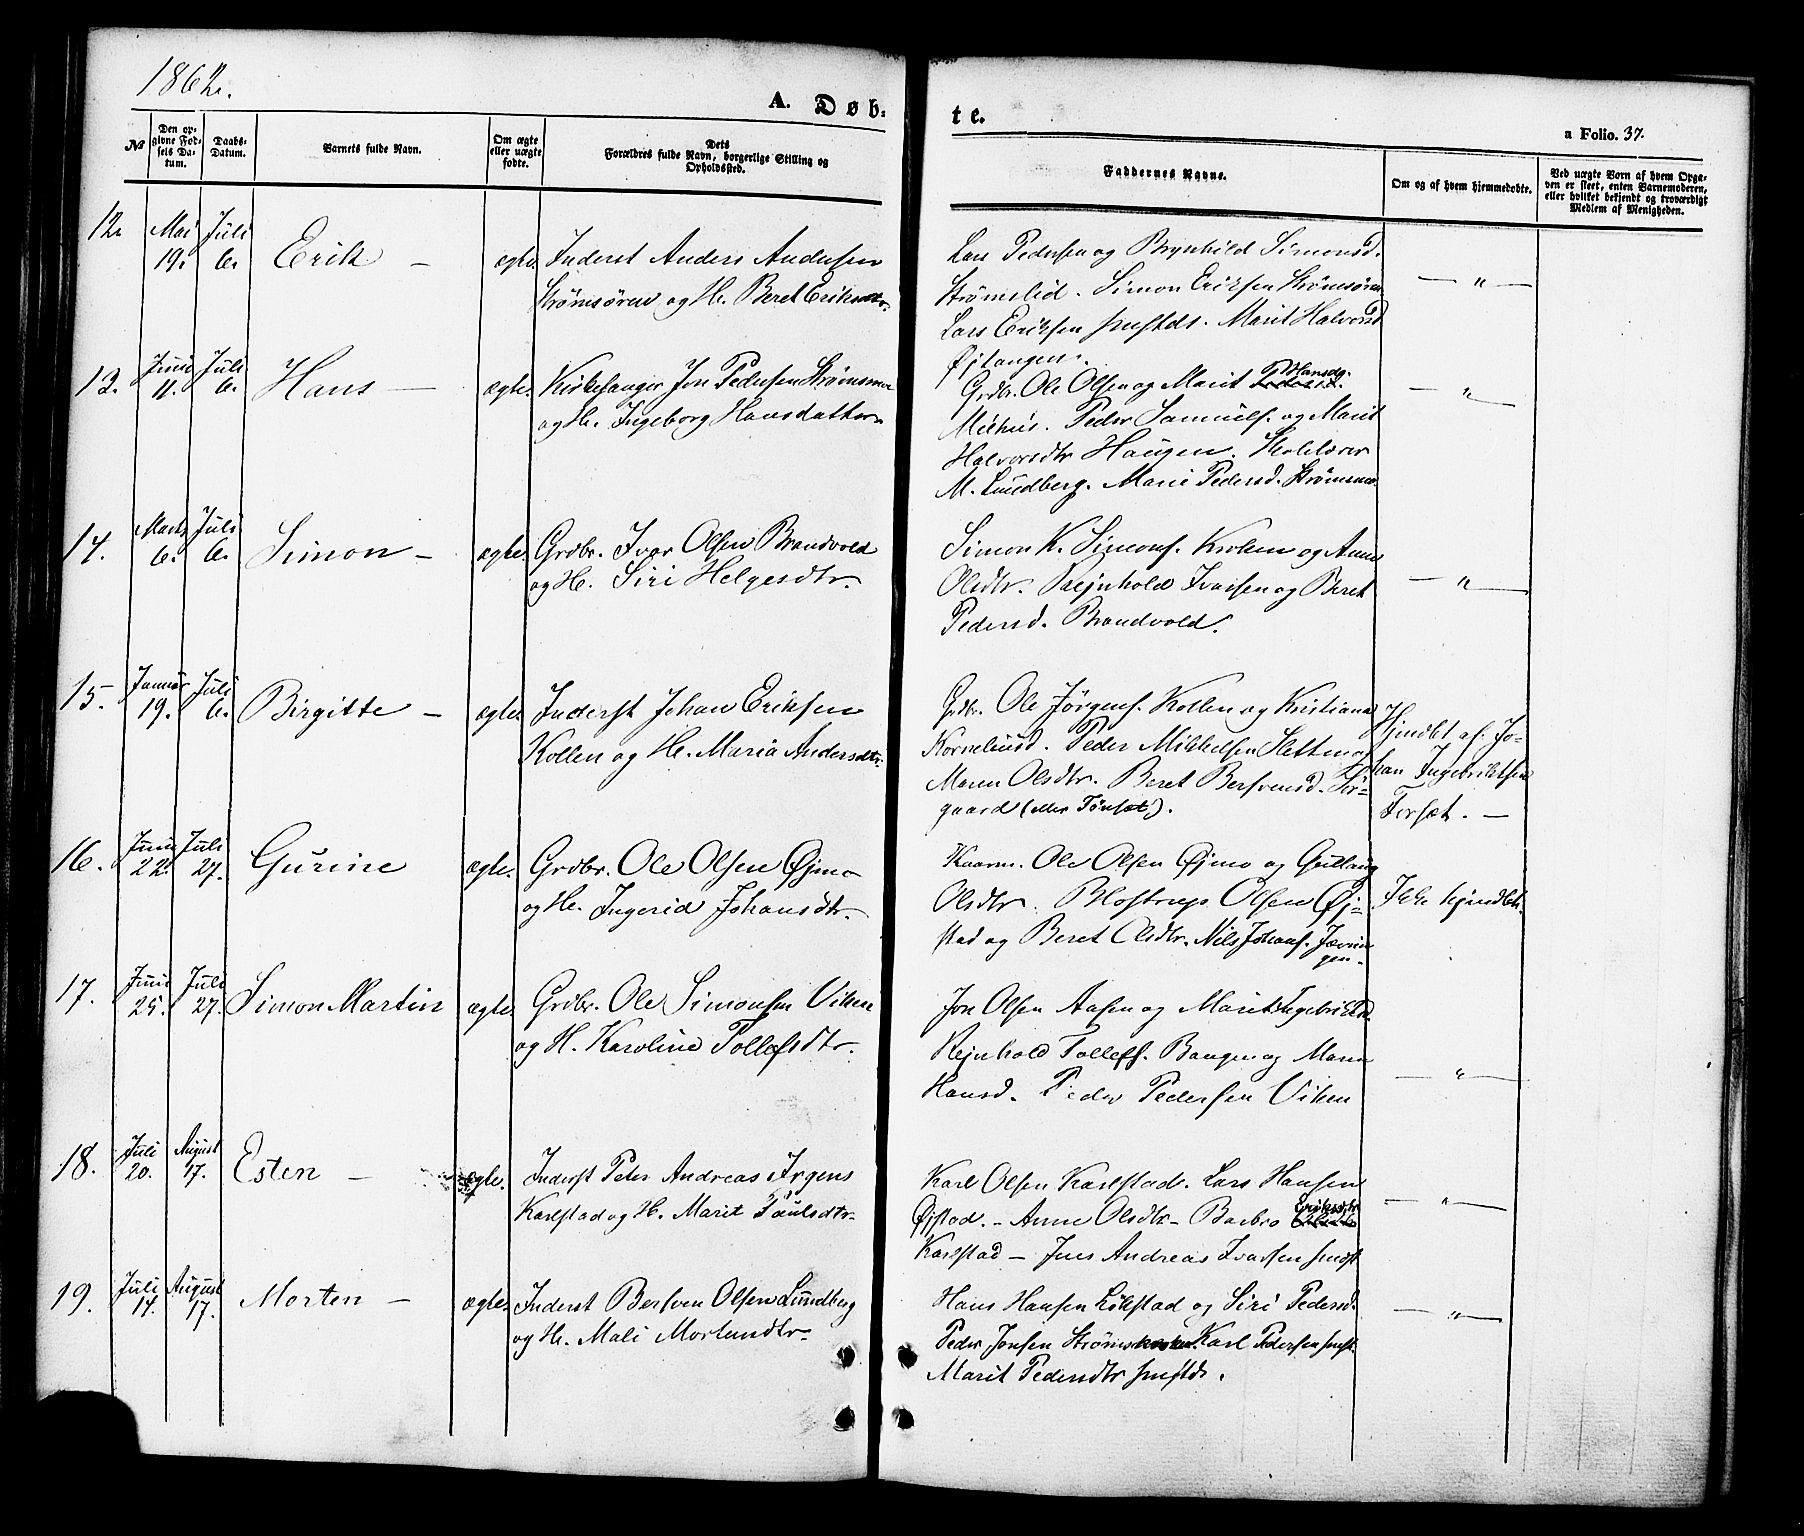 1862.
A. Døb-
te.
a Folio. 37.
№
Den op-
givne Fød-
sels Da-
tum.
Daabs-
Datum.
Barnets fulde Navn.
Om ægte
eller uægte
fødte.
Dets
Forældres fulde Navn, borgerlige Stilling og
Opholdssted.
Faddernes Navne.
Om og af hvem hjemmedøbte.
Ved uægte Børn af hvem Opga-
ven er skeet, enten Barnemoderen,
eller hvilket bekjendt og troværdigt
Medlem af Menigheden.
12. Mai 19. Juli 6. Erik — ægte. Inderst Anders Andersen
Strømsøren og H. Beret Eriksdtr.
Lars Pedersen og Brynhild Simonsd.
Strømslid. Simon Eriksen Strømsøren
Lars Eriksen smstds. Marit Halvorsd
Øjtangen.
— " —
13. Juni 11. Juli 6. Hans — ægte. Kirkesanger Jon Pedersen Strømsmoe
og H. Ingeborg Hansdatter
Grdbr. Ole Olsen og Marit Hansdtr.
Mithus. Peder Samuels. og Marit
Halvorsdtr Haugen. Skolelærer
M. Lundberg. Marie Pedersd. Strømsmoe
— " —
14. Marts 6. Juli 6. Simon — ægte. Grdbr. Ivar Olsen Brandvold
og H. Siri Helgesdtr.
Simon K. Simons. Kroken og Anne
Olsdtr. Rejnhold Ivarsen og Beret
Pedersd. Brandvold.
— " —
15. Januar 19. Juli 6. Birgitte — ægte. Inderst Johan Eriksen
Kollen og H. Maria Andersdtr.
Grdbr. Ole Jørgens. Kollen og Kristiana
Korneliusd. Peder Mikkelsen Sletten og
Maren Olsdtr. Beret Bersvensd. Sør-
gaard (eller Tønset).
Hjmdbt af Jo-
han Ingebriktsen
Forset. —
16. Juni 22. Juli 27. Gurine ægte. Grdbr. Ole Olsen Øjmo
og H. Ingerid Johansdtr.
Kaarm. Ole Olsen Øjmo og Gullaug
Olsdtr. Blostrup Olsen Øj-
stad og Beret Olsdtr. Nils Johans. Jævin
gen.
Ikke hjmdbt.
17. Juni 25. Juli 27. Simon Martin ægte. Grdbr. Ole Simonsen Viken
og H. Karoline Tollefsdtr.
Jon Olsen Aasen og Marit Ingebriktsd.
Rejnhold Tollefs. Baugen og Maren
Hansd. Peder Pedersen Viken
— " —
18. Juli 20. August 17. Esten — ægte. Inderst Peter Andreas Irgens
Karlstad og H. Marit Paulsdtr.
Karl Olsen Karlstad. Lars Hansen
Øjstad. — Anne Olsdtr — Barbro Eriksdtr
Karlstad — Jens Andreas Ivarsen smst
— " —
19. Juli 14. August 17. Morten — ægte. Inderst Bersven Olsen Lundberg
og H. Mali Mortensdtr.
Hans Hansen Løkstad og Siri Pedersd.
Peder Jonsen Strøms Karl Pedersen smst.
Marit Pedersdtr smstds.
— " —